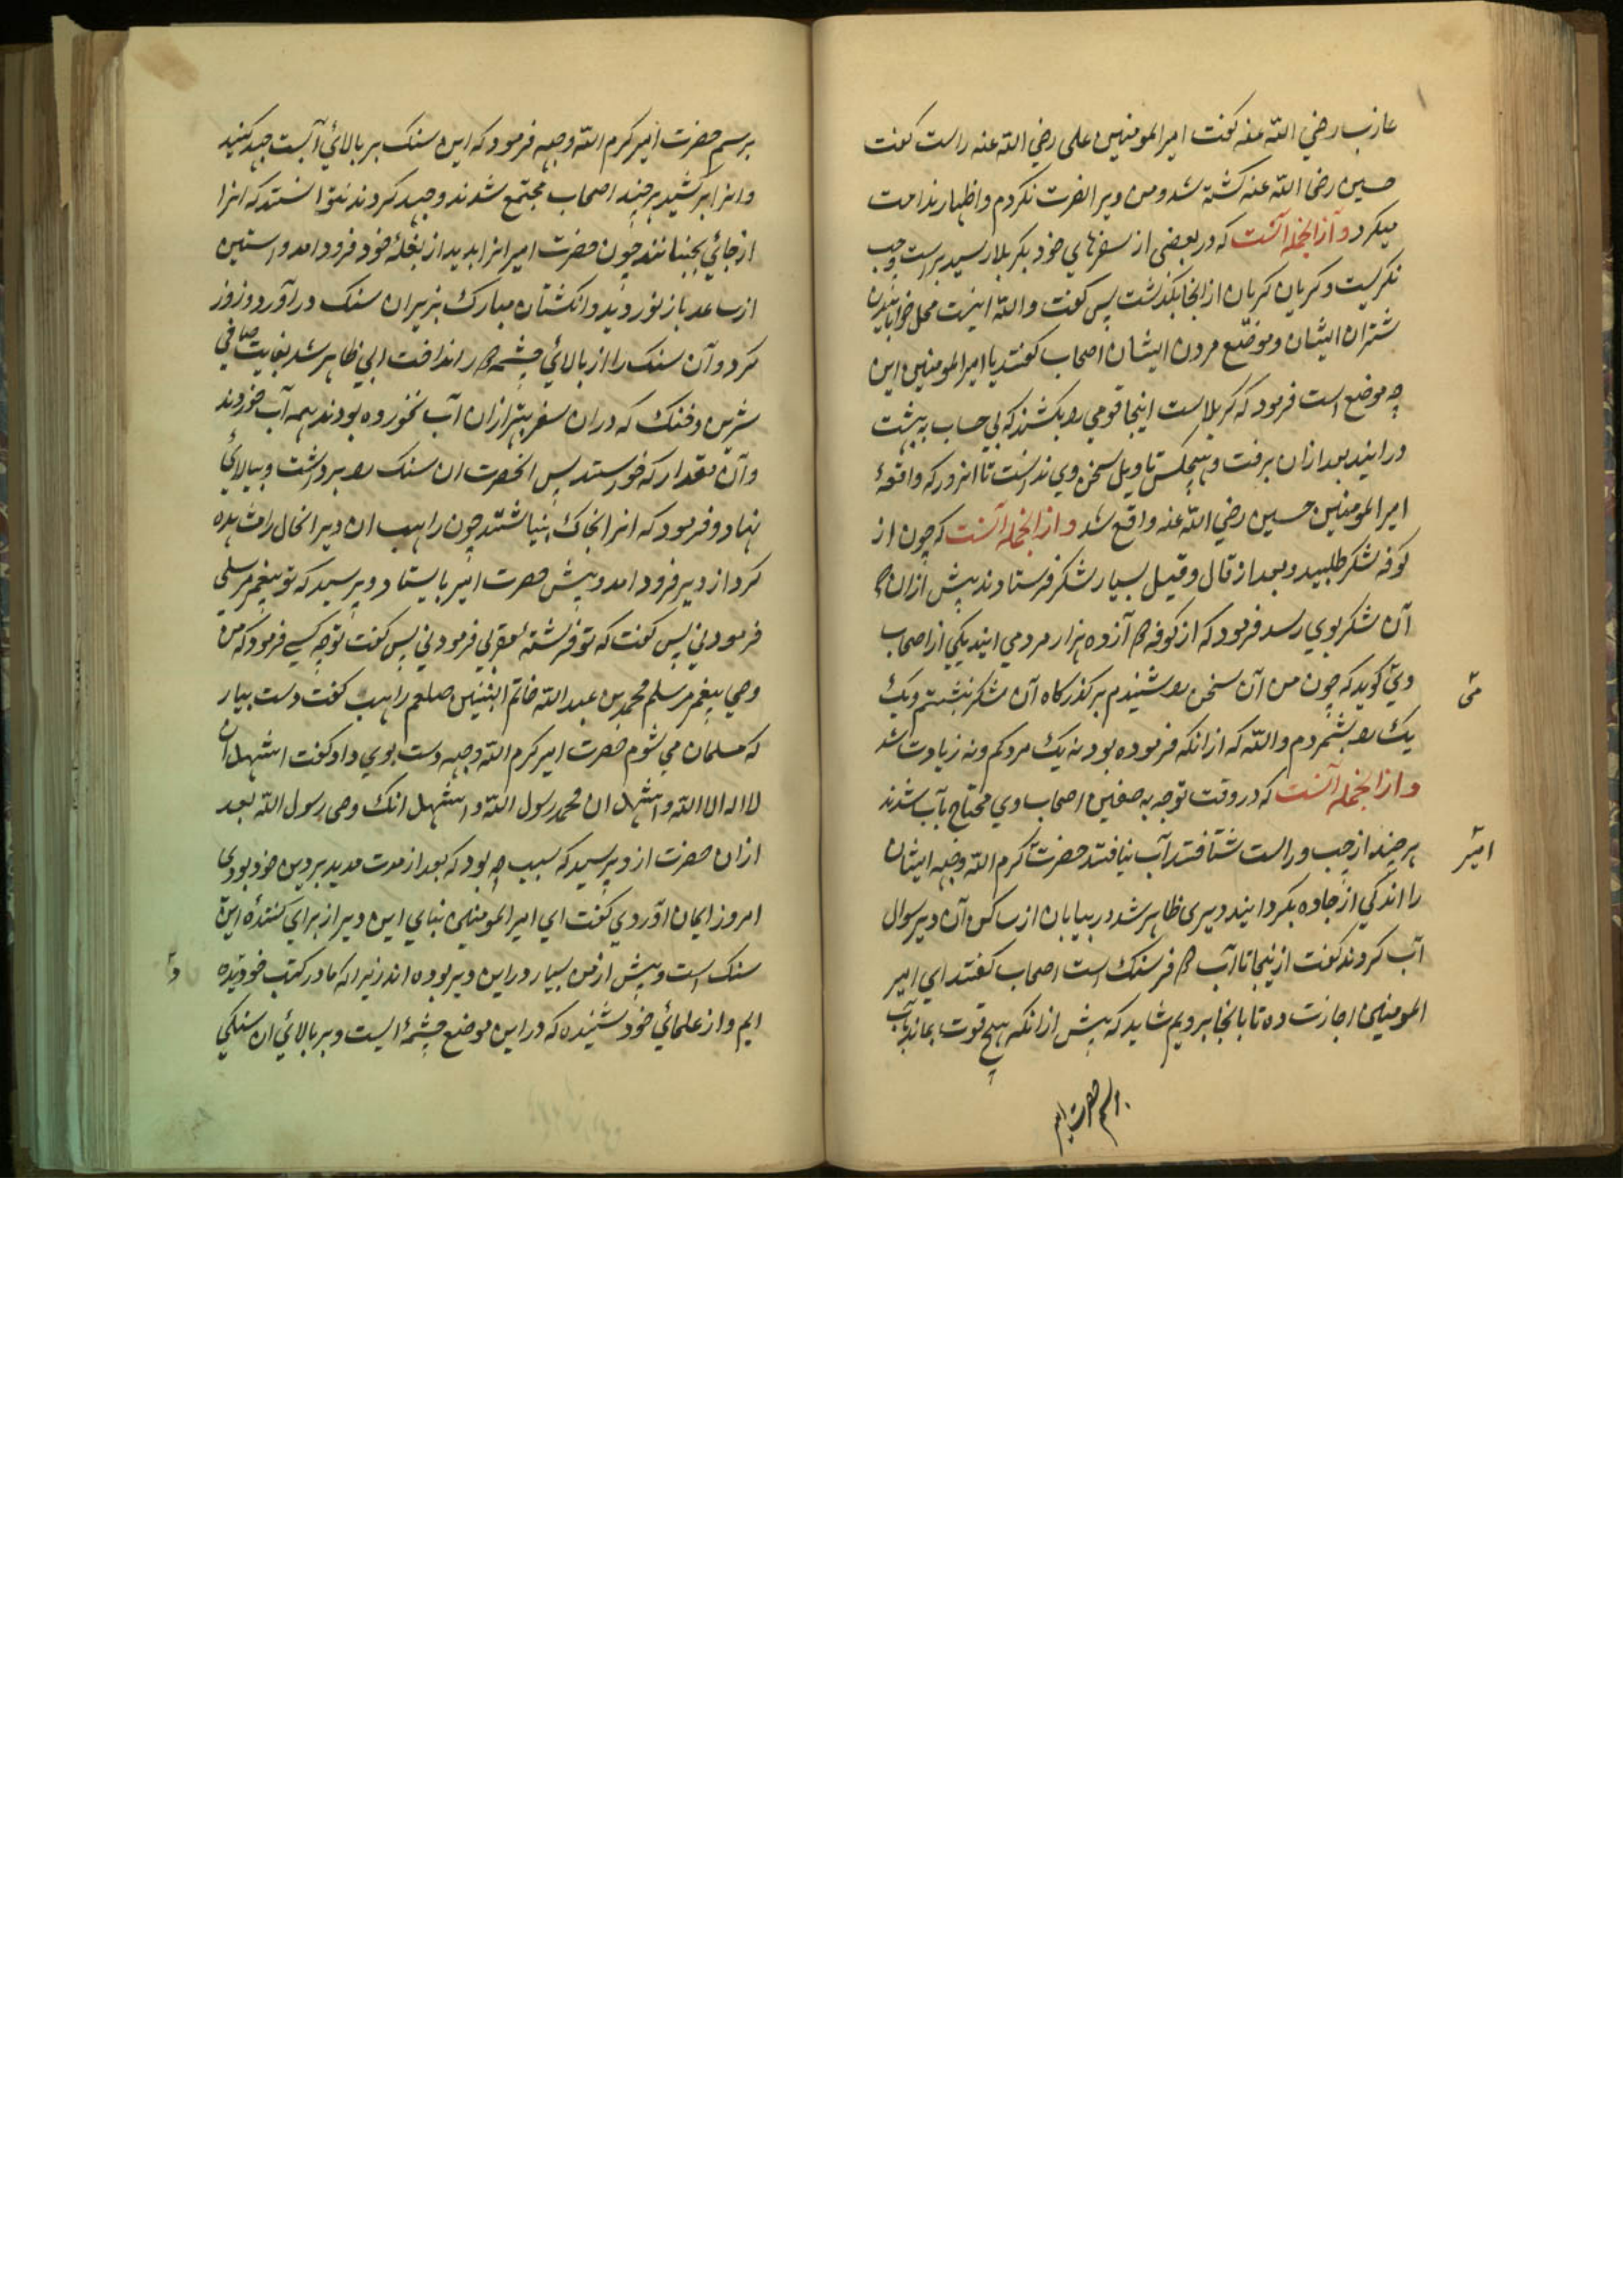 عازب رضي الله عنه كفت امير المومنين على رضي الله عنه راست كفت
حسين رضى الله عنه كشته شد ومن ويرا نصرت نكردم واظهار ندامت
ميكرد وازانجمله آنست كه در بعضى از سفرهاي خود بكربلا رسيد براست وچپ
نكريست وكريان كريان ازانجا بكذشت پس كفت والله اينست محل خوابانيدن
شتران ايشان وموضع مردن ايشان اصحاب كفتند يا امير المومنين اين
چه موضع است فرمود كه كربلاست اينجا قومي را بكشند كه بي حساب به بهشت
درايند بعد ازان برفت وهيچكس تاويل سخن وي ندانست تا انروز كه واقعهٔ
امير المومنين حسين رضي الله عنه واقع شد وازانجمله آنست كه چون از
كوفه لشكر طلبيد وبعد از قال وقيل بسيار لشكر فرستادند پيش ازان كه
آن لشكر بوي رسد فرمود كه از كوفه دوازده هزار مرد مي ايند يكي از اصحاب
وي كويد كه چون من آن سخن را شنيدم بر كذركاه آن لشكر بنشستم ويك
مى
يك را بشمردم والله كه ازانكه فرموده بود نه يك مرد كم ونه زيادت شد
وازانجمله آنست كه در وقت توجه به صفين اصحاب وي محتاج بآب شدند
هر چند از چپ وراست شتافتند آب نيافتند حضرت كرم الله وجهه ايشان
امير
را اندكي از جاده بكردانيد ديرى ظاهر شد در بيابان از ساكن آن دير سوال
آب كردند كفت ازينجا تا آب دو فرسنك است اصحاب كفتند اي امير
المومنين اجازت ده تا بانجا برويم شايد كه پيش ازانكه هيچ قوت بماند بآب
برسم حضرت امير
برسم حضرت امير كرم الله وجهه فرمود كه اين سنك بر بالائ آبست جهد كنيد
وانرا بركشيد هر چند اصحاب مجتمع شدند وجهد كردند نتوانستند كه انرا
از جائي بجنبانند چون حضرت امير انرا بديد از بغلهٔ خود فرود امد واستين
از ساعد باز نورديد وانكشتان مبارك بزير ان سنك دراورد وزور
كرد وآن سنك را از بالائ چشمه دور انداخت ابي ظاهر شد بغايت صافي
شيرين وخنك كه دران سفر بهتر ازان آب نخورده بودند همه آب خوردند
وآن مقدار كه خواستند پس انحضرت ان سنك را برداشت وببالائ
نهاد وفرمود كه انرا بخاك بنياشتند چون راهب ان دير انحال را مشاهده
كرد از دير فرود امد وپيش حضرت امير بايستاد وپرسيد كه تو پيغمبر مرسلي
فرمود ني پس كفت كه تو فرشته مقربي فرمود ني پس كفت تو چه كسي فرمود كه من
وصي پيغمبر مرسلم محمد بن عبد الله خاتم النبيين صلعم راهب كفت دست بيار
كه مسلمان مي شوم حضرت امير كرم الله وجهه دست بوي داد وكفت اشهد ان
لا اله الا الله واشهد ان محمد رسول الله واشهد انك وصى رسول الله بعد
ازان حضرت از وپرسيد كه سبب چه بود كه بعد از مدت مديد بر دين خود بودى
امروز ايمان آوردي كفت اي امير المومنين بناي اين دير از براي كنندهٔ اين
سنك است وپيش از من بسيار در اين دير بوده اند زيرا كه ما در كتب خود ديده
ايم واز علمائي خود شنيده كه در اين موضع چشمهٔ ايست وبر بالائ ان سنكي